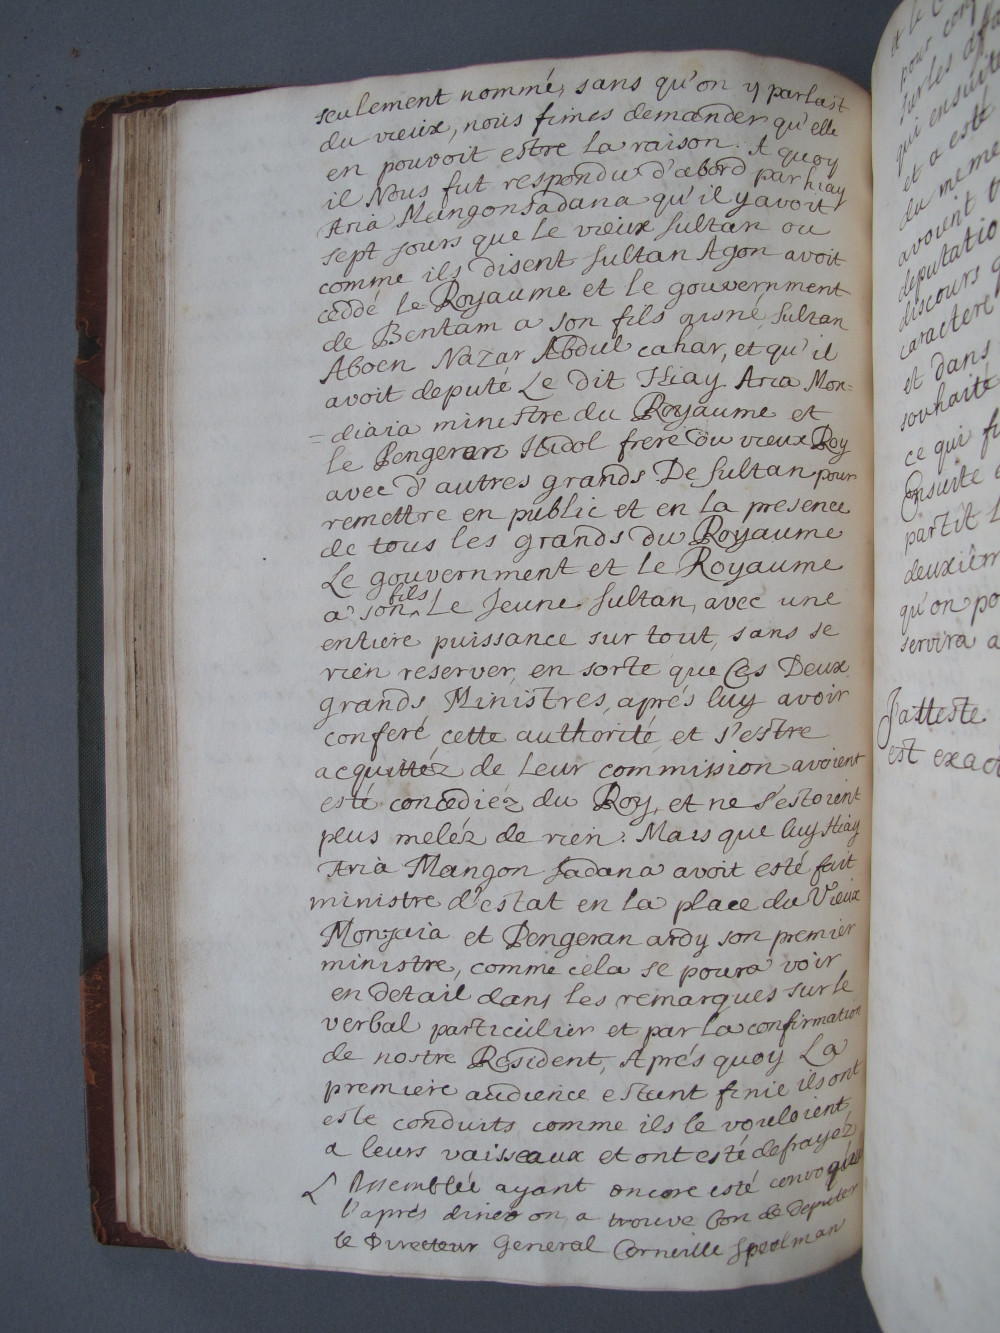 seulement nommé, sans qu'on y parlast
du vieux, nous fimes demander qu'elle
en pouvoit estre la raison. A quoy
il Nous fut respondu d'abord par hiay
Aria Mangonsadana qu'il y avoit
sept jours que le vieux sultan ou
comme ils disent sultan Agon avoit
ceddé le Royaume et le gouvernment
de Bentam a son fils aisné, sultan
Aboen Nazar Abdul cahar, et qu'il
avoit deputé Le dit Kiay Aria Mon=
=diaia ministre du Royaume et
le Pengeran Kidol frere du vieux Roy
avec d'autres grands De sultan pour
remettre en public et en la presence
de tous les grands du Royaume
Le gouvernment et le Royaume
a son fils Le Jeune sultan, avec une
entiere puissance sur tout, sans se
rien reserver, en sorte que Ces Deux
grands Ministres, aprés luy avoir
conferé cette authorité, et s'estre
acquittéz de leur commission avoient
esté concediéz du Roy, et ne s'estoient
plus meléz de rien. Mais que luy Kiay
Aria Mangon sadana avoit esté fait
ministre d'estat en la place du Vieux
Monjaia et Pengeran ardy son premier
ministre, comme cela se poura voir
en detail dans les remarques sur le
verbal particulier et par la confirmation
de nostre Resident, Aprés quoy La
premiere audience estant finie ils ont
esté conduits comme ils le vouloient
a leurs vaisseaux et ont esté defrayéz
L'Assemblée ayant encore esté convoquée
l'aprés diner on a trouvé bon de Deputer
le Directeur General Corneille speelman
pour
sur les
qui ensuite
et a esté
du meme
avoient
deputation
discours
caractere
et dans
souhaité
ce qui
Ensuite
partit
deuxiém
qu'on po
servira a
J'atteste
est exact